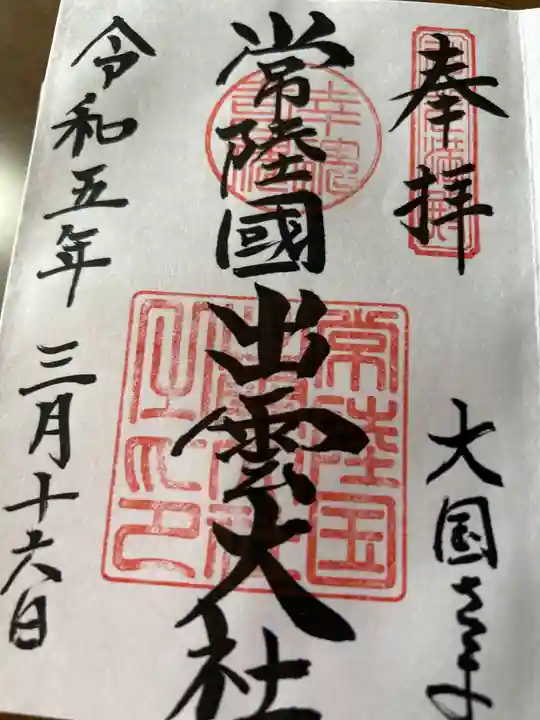 奉拝
大国さま
常陸國出雲大社
幸魂
常陸国
出雲大社
之印
令和五年三月十六日